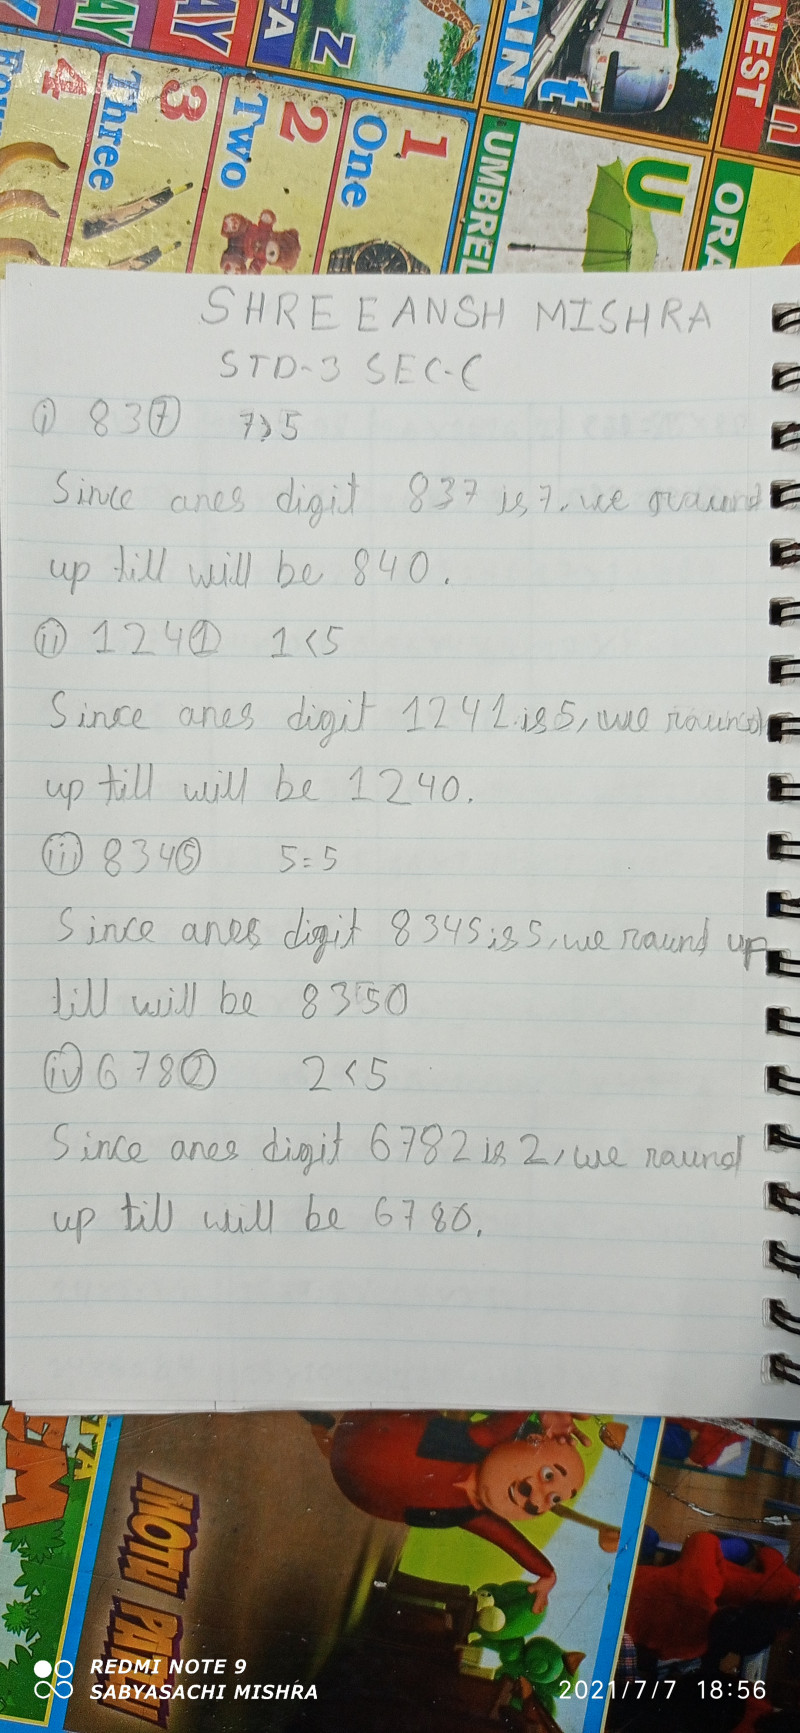 AY
AY
FA
Z
AIN
t
NEST
n
Four
4
Three
3
Two
2
One
1
UMBREL
U
ORA
SHREEANSH MISHRA
STD-3 SEC-C
(i) 837 7>5
Since anes digit 837 is 7, we raund
up till will be 840.
(ii) 1241 1<5
Since anes digit 1241 is 5, we raund
up till will be 1240.
(iii) 8345 5=5
Since anes digit 8345 is 5, we raund up
till will be 8350
(iv) 6782 2<5
Since anes digit 6782 is 2, we raund
up till will be 6780.
MOTU PATLU
REDMI NOTE 9
SABYASACHI MISHRA
2021/7/7 18:56